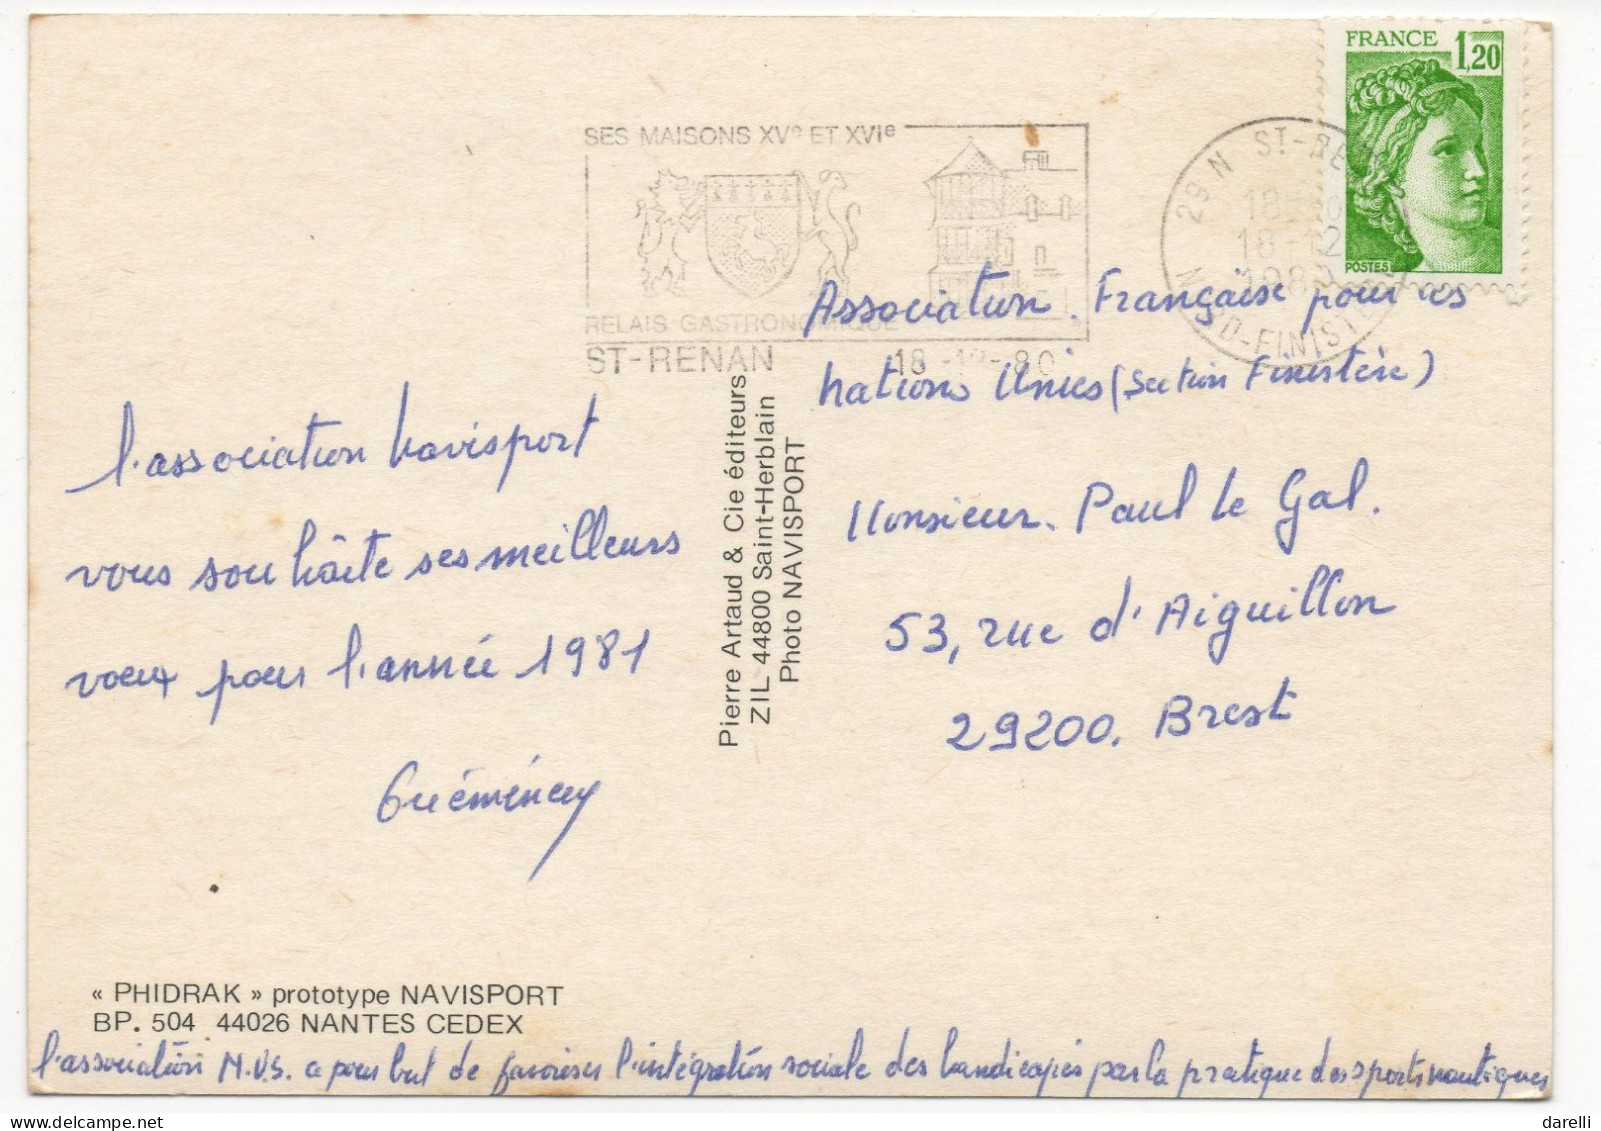 FRANCE 1,20
POSTES
SES MAISONS XVe ET XVIe
RELAIS GASTRONOMIQUE
ST-RENAN 18-12-80
29 N ST-RE
18
18-12
1980
NORD-FINISTE
Association Française pour les
Nations Unies (Section Finistère)
Monsieur Paul le Gal.
53, rue d'Aiguillon
29200. Brest
l'association Navisport
vous souhaite ses meilleurs
voeux pour l'année 1981
Pierre Artaud & Cie éditeurs
ZIL 44800 Saint-Herblain
Photo NAVISPORT
« PHIDRAK » prototype NAVISPORT
BP. 504 44026 NANTES CEDEX
l'association N.V.S. a pour but de favoriser l'intégration sociale des handicapés par la pratique des sports nautiques
darelli